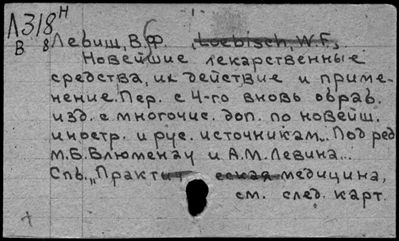 Л318 Н
В 8
Левиш, В.Ф. Loebisch, W.F.,
Новейшие лекарственные
средства, их действие и приме-
нение. Пер. с 4-го вновь обраб.
изд. с многочис. доп. по новейш.
иностр. и рус. источникам... Под ред.
М.Б. Блюменау и А.М. Левина...
Спб., "Практическая медицина,
см. след. карт.